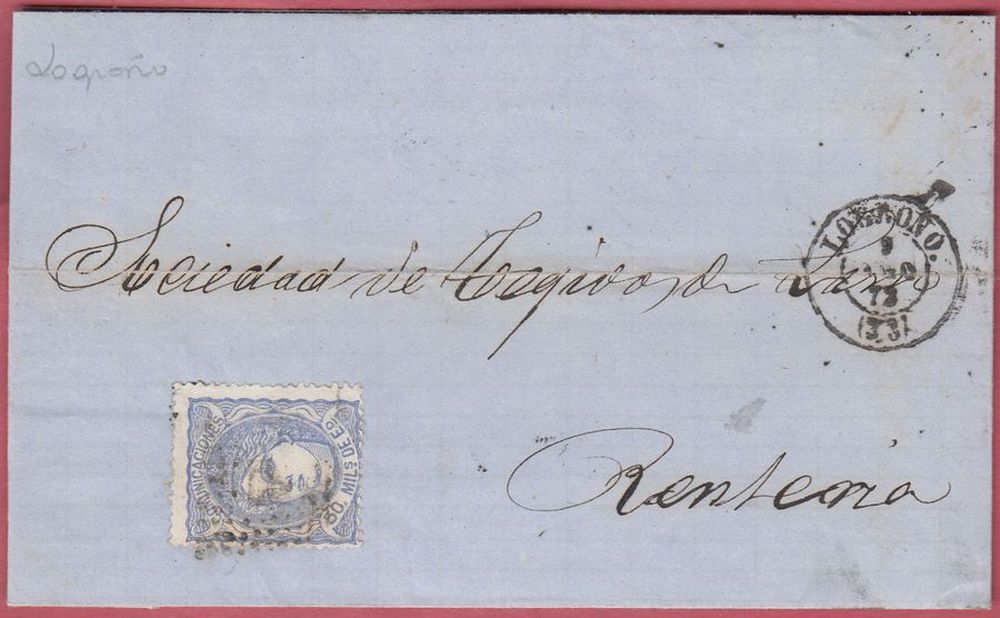 Logroño
Sociedad de Tegidos de Lino
LOGROÑO.
9
73
(33)
COMUNICACIONES
50 MILS DE EO
Renteria